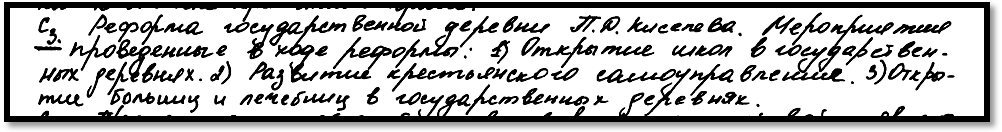 С3. Реформа государственной деревни П.Д. Киселева. Мероприятие
проведенные в ходе реформы: 1) Открытие школ в государствен-
ных деревнях. 2) Развитие крестьянского самоуправление. 3) Откры-
тие больниц и лечеблиц в государственных деревнях.